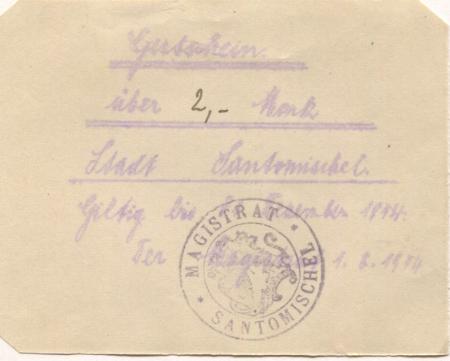 Gutschein
über 2,- Mark
Stadt Santomischel.
Giltig bis Dezember 1914.
Der Magistrat 1. 8. 1914
* MAGISTRAT * SANTOMISCHEL